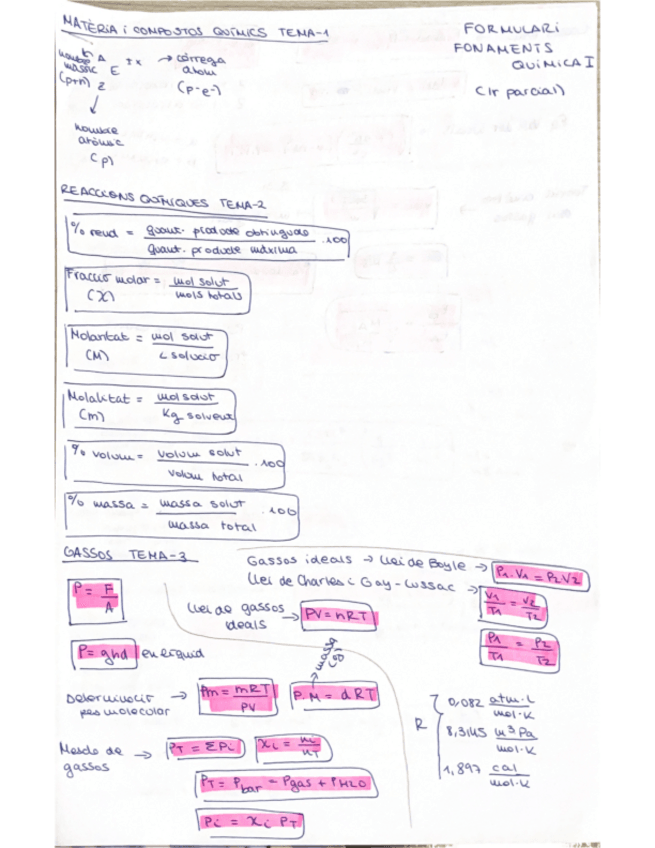 MATÈRIA i COMPOSTOS QUÍMICS TEMA-1
FORMULARI
FONAMENTS
QUÍMICA I
(1r parcial)
nombre màssic (p+n)
A
Z
E
±x → càrrega àtom (p-e-)
nombre
atòmic
(p)
REACCIONS QUÍMIQUES TEMA-2
% rend = quant. producte obtinguda / quant. producte màxima · 100
Fracció molar = mol solut / mols totals
(X)
Molaritat = mol solut / L solució
(M)
Molalitat = mol solut / Kg solvent
(m)
% volum = volum solut / volum total · 100
% massa = massa solut / massa total · 100
GASSOS TEMA-3
Gassos ideals → Llei de Boyle → P1·V1 = P2V2
Llei de Charles i Gay-Lussac → V1/T1 = V2/T2
P1/T1 = P2/T2
P = F/A
Llei de gassos ideals → PV = nRT
P = ghd en líquid
massa (g)
Determinació pes molecular → Pm = mRT/PV
P.M = dRT
Mescla de gassos → PT = ΣPi
xi = ni/nT
PT = Pbar = Pgas + PH2O
Pi = xi PT
R
0,082 atm·L / mol·K
8,3145 m³Pa / mol·K
1,897 cal / mol·K